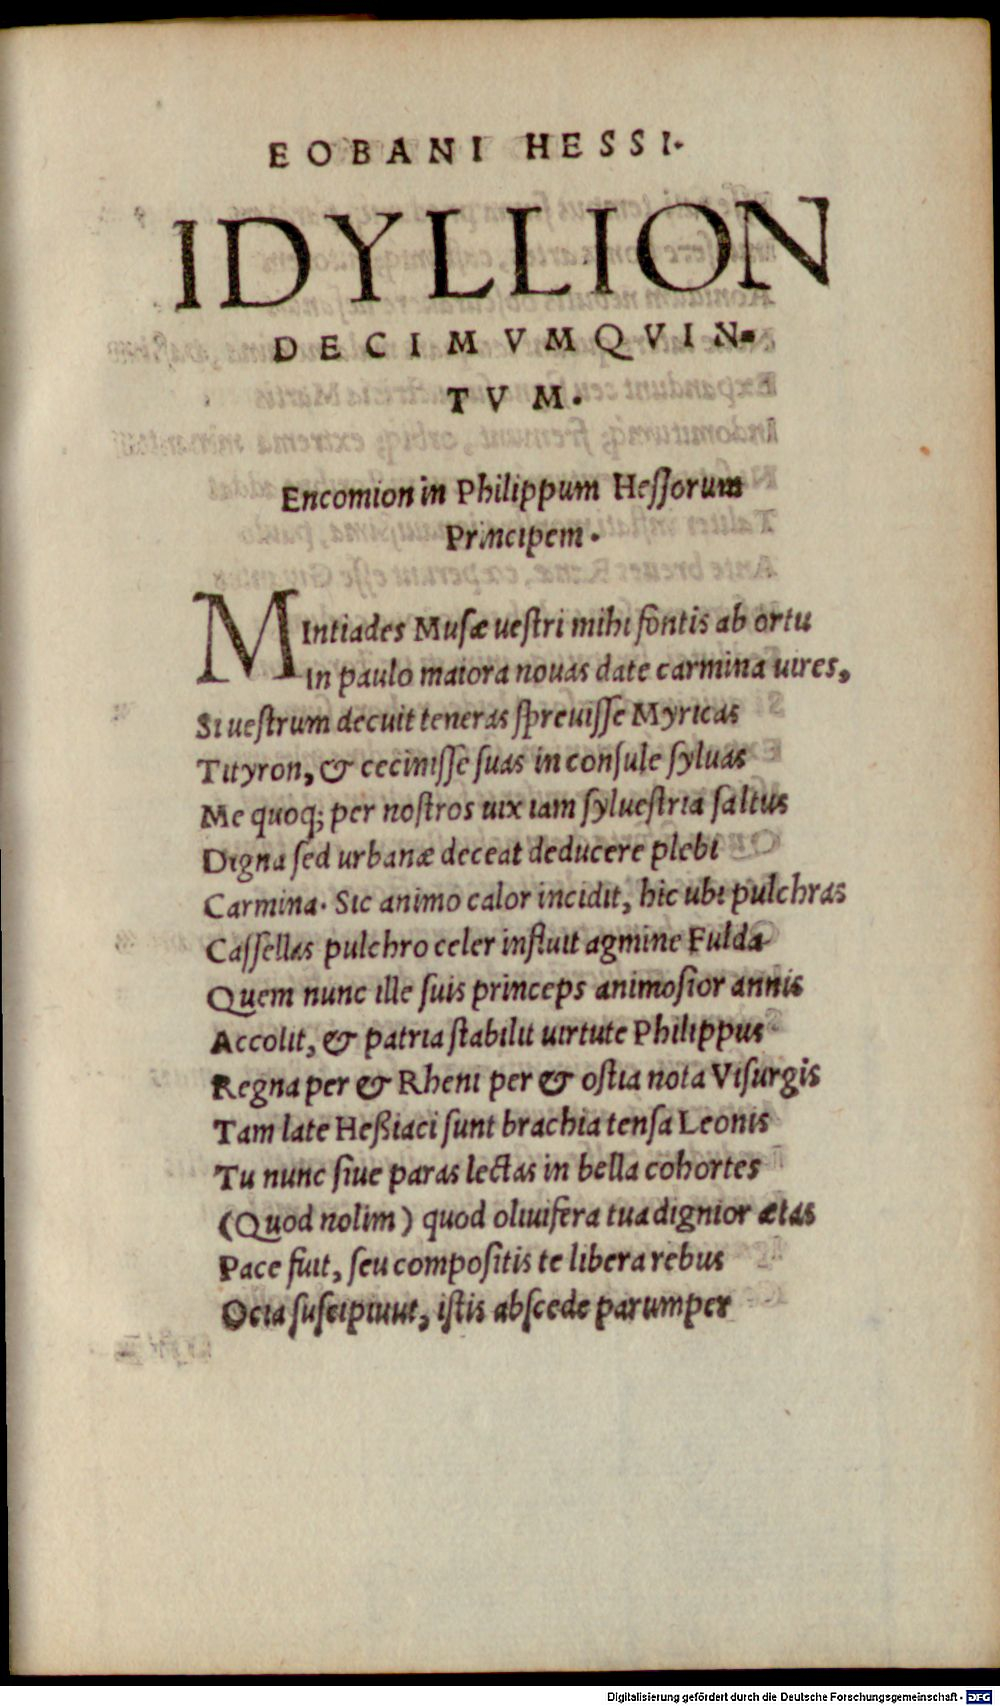 EOBANI HESSI.
IDYLLION
DECIMVMQVIN-
TVM.
Encomion in Philippum Hessorum
Principem.
MIntiades Musæ uestri mihi fontis ab ortu
In paulo maiora nouas date carmina uires,
Si uestrum decuit teneras spreuisse Myricas
Tityron, & cecinisse suas in consule syluas
Me quoq; per nostros uix iam syluestria saltus
Digna sed urbanæ deceat deducere plebi
Carmina. Sic animo calor incidit, hic ubi pulchras
Cassellas pulchro celer influit agmine Fulda
Quem nunc ille suis princeps animosior annis
Accolit, & patria stabilit uirtute Philippus
Regna per & Rheni per & ostia nota Visurgis
Tam late Heßiaci sunt brachia tensa Leonis
Tu nunc siue paras lectas in bella cohortes
(Quod nolim) quod oliuifera tua dignior ætas
Pace fuit, seu compositis te libera rebus
Ocia suscipiunt, istis abscede parumper
Digitalisierung gefördert durch die Deutsche Forschungsgemeinschaft - DFG